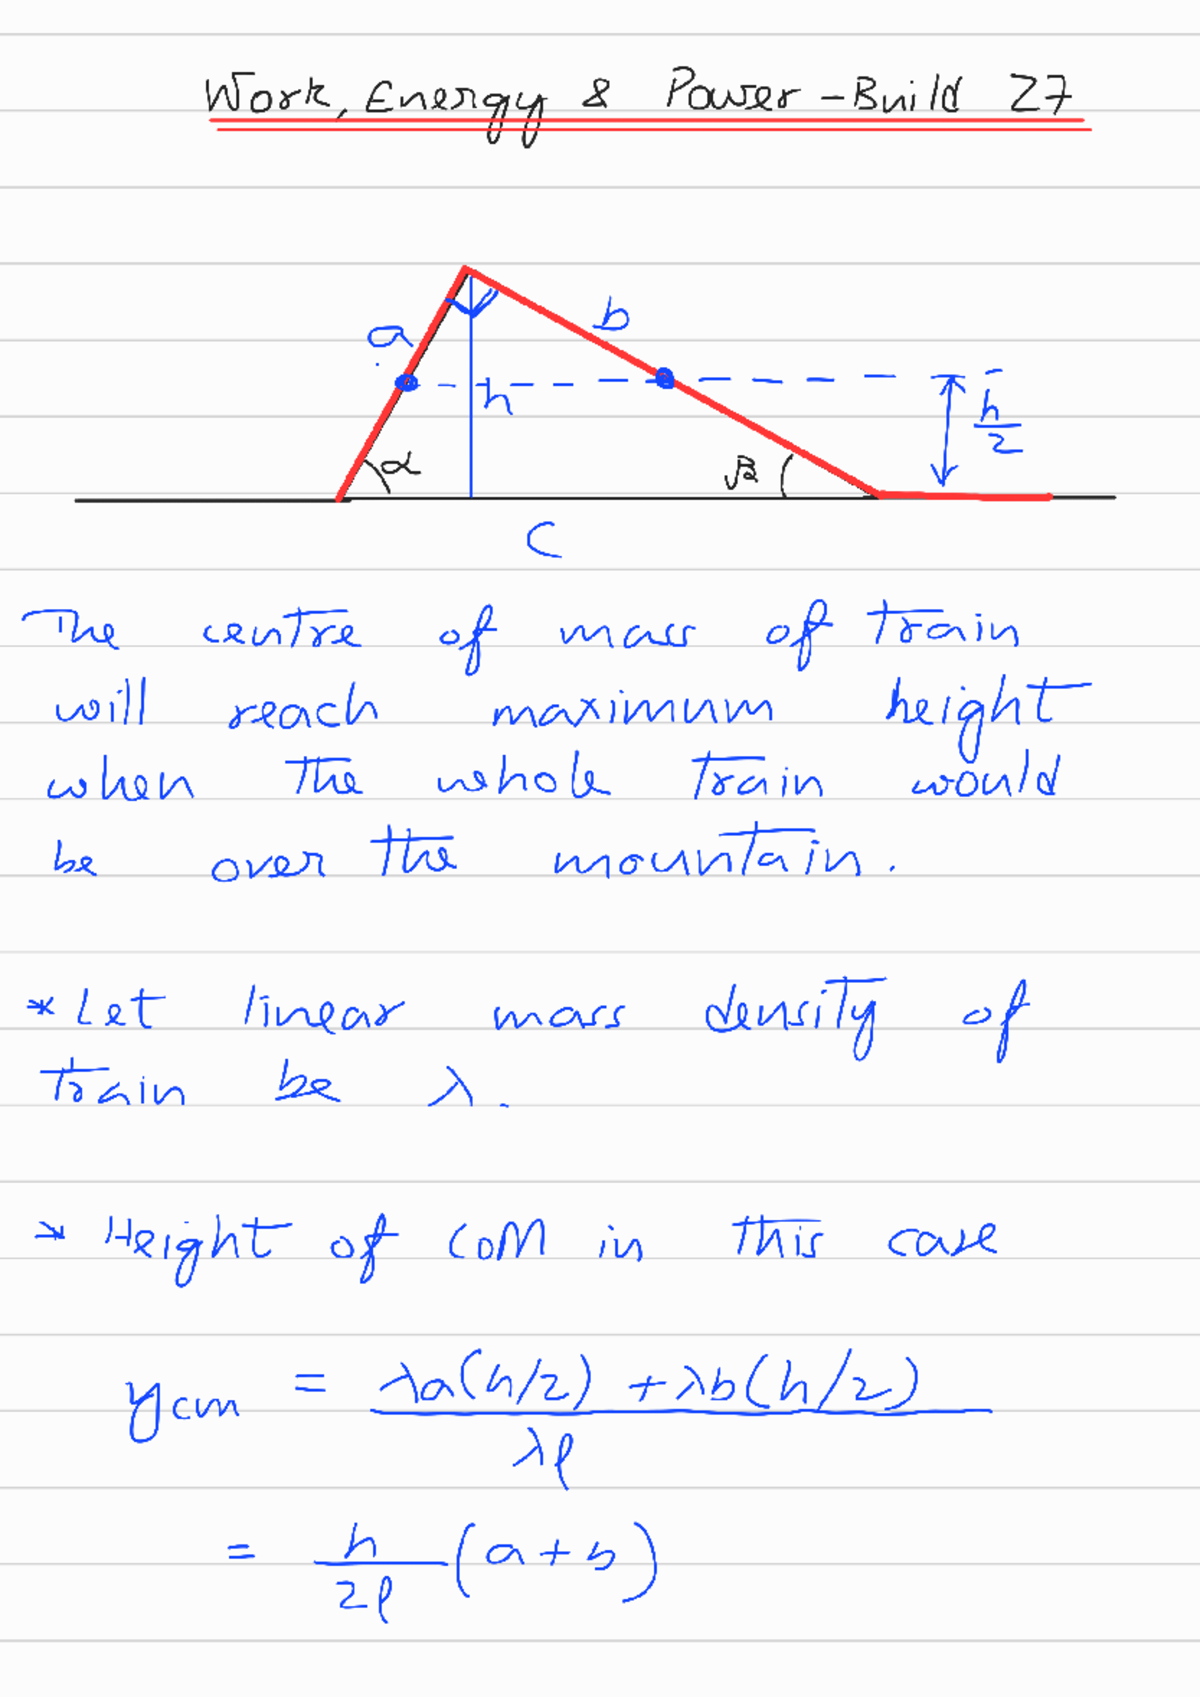 Work, Energy & Power - Build 27
a
b
h
h/2
α
β
C
The centre of mass of train
will reach maximum height
when the whole train would
be over the mountain.
* Let linear mass density of
train be λ.
* Height of COM in this case
ycm = λa(h/2) + λb(h/2) / λl
= h/2l (a+b)